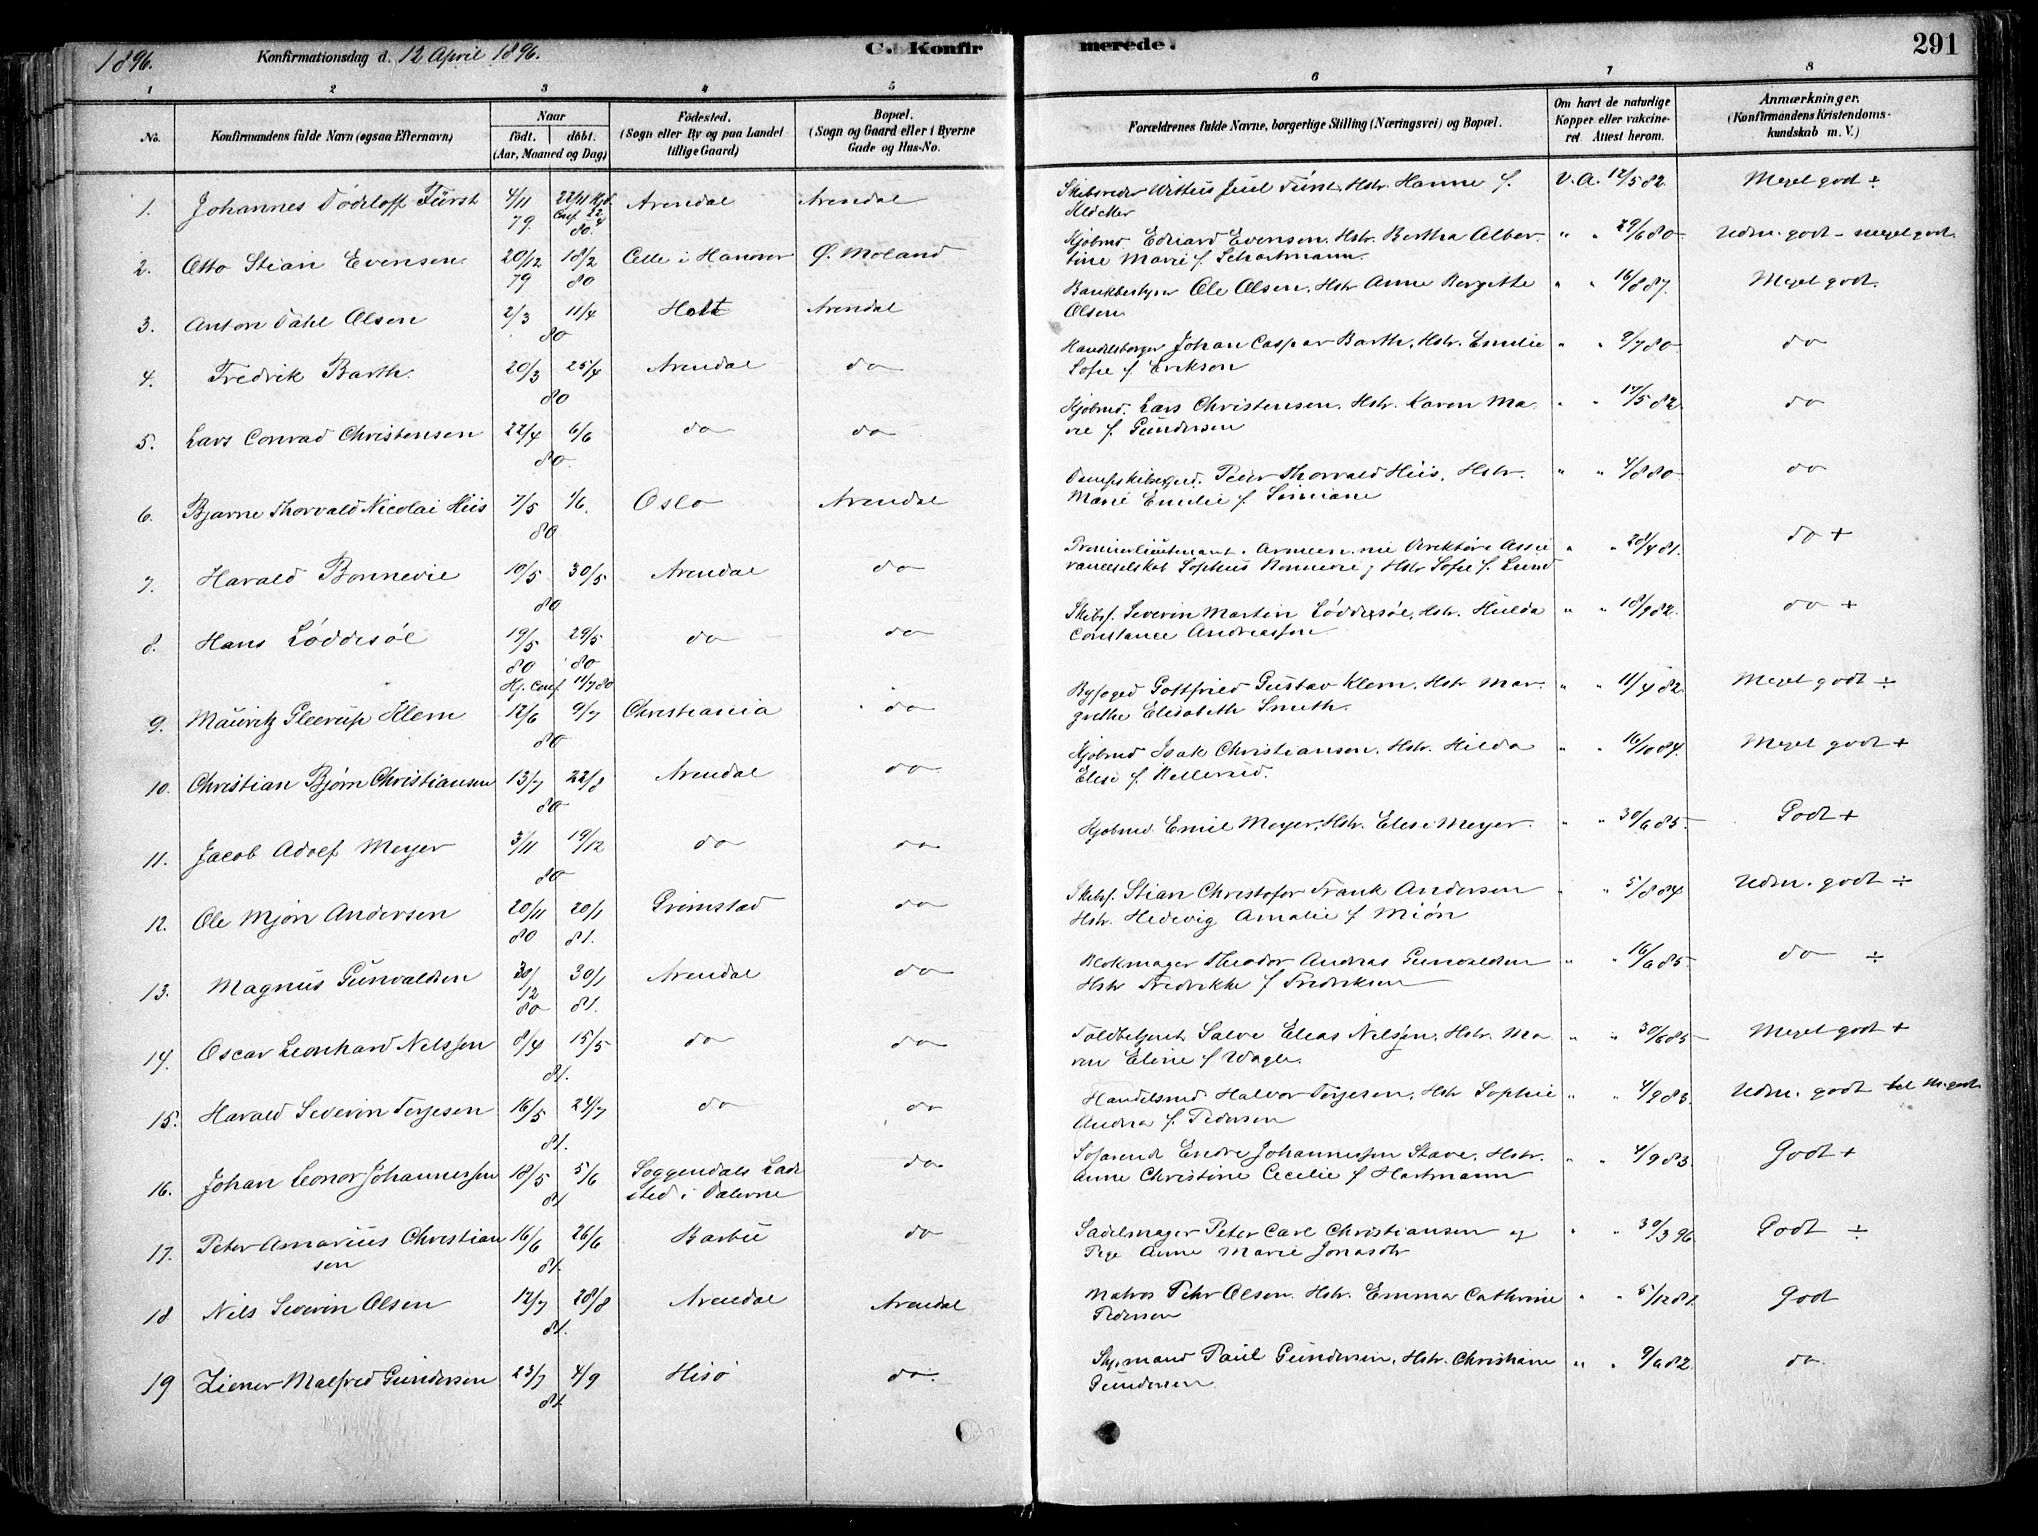 1896. Konfirmationsdag d. 12 April 1896. C. Konfirmerede. 291
1 2 3 4 5 6 7 8
No. Konfirmandens fulde Navn (ogsaa Efternavn) Naar født. døbt. (Aar, Maaned og Dag) Fødested. (Sogn eller By og paa Landet tillige Gaard) Bopæl. (Sogn og Gaard eller i Byerne Gade og Hus-No. Forældrenes fulde Navne, borgerlige Stilling (Næringsvei) og Bopæl. Om havt de naturlige Kopper eller vakcineret Attest herom. Anmærkninger. (Konfirmandens Kristendomskundskab m. V.)
1. Johannes Tödtloff Fürst 4/11 79. 22/11 Hjd. Conf. 22/4 80. Arendal Arendal Skibsreder Wittus Juul Fürst, Hstr. Hanne f. V. A. 12/5 82. Meget godt ÷
Kløcker
2. Otto Stian Evensen 20/12 79 18/2 80 Celle i Hanover Ø. Moland Kjøbmd. Edvard Evensen. Hstr. Bertha Alber- " " 29/6 80 Udm. godt - meget godt.
tine Marie f. Schartmann.
3. Anton Dahl Olsen 2/3 11/4 80 Holt Arendal Bankbestyrer Ole Olsen, Hstr Anne Bergitte " " 16/8 87. Meget godt.
Olsen
4. Fredrik Barth. 20/3 25/4 80 Arendal do Handelsborger Johan Caspar Barth, Hstr. Emilie " " 9/7 80. do
Sofie f. Erikson
5. Lars Conrad Christensen 22/4 6/6 80. do do Kjøbmd. Lars Christensen. Hstr. Karen Ma- " " 17/5 82. do
rie f. Gundersen
6. Bjarne Thorvald Nicolai Hiis 7/5 1/6. 80 Oslo Arendal Dampskibsexped. Peter Thorvald Hiis, Hstr. " " 4/8 80 do
Marie Emilie f. Simiane
7. Harald Bonnevie 10/5 30/5 80 Arendal do Premierlieutenant i Armeen. nu Direktør i Assu- " " 28/4 81. do +
ranceselskab Sophus Bonnevie, Hstr Sofie f. Lund
8. Hans Løddesøl 19/5 80 29/5 80 Hj. Conf. 11/7 80 do do Skibsf. Severin Martin Løddesøl, Hstr. Hulda " " 18/9 82. do +
Constance Andreassen
9. Mauritz Gleerup Klem 12/6 9/7 80 Christiania do Byfoged Gottfried Gustav Klem, Hstr Mar- " " 11/4 82. Meget godt ÷
grethe Elisabeth Smith.
10. Christian Bjørn Christiansen 13/7 22/8 80 Arendal do Kjøbmd Isak Christiansen, Hstr. Hilda " " 16/10 84. Meget godt +
Elise f. Kallevig.
11. Jacob Adolf Meyer 3/11 19/12 80 do do Kjøbmd. Emil Meyer, Hstr. Elise Meyer. " " 30/6 85. Godt +
12. Ole Mjøn Andersen 20/11 80 20/1 81. Grimstad do Skibsf. Stian Christofer Frank Andersen " " 5/8 84 Udm. godt ÷
Hstr. Hedevig Amalie f Miøn
13. Magnus Gunvaldsen 30/12 80 30/1 81. Arendal do Blokmager Theodor Andreas Gunvaldsen " " 16/6 85. do ÷
Hstr Fredrikke f Fredriksen
14. Oscar Leonhard Nilssen 8/4 15/5 81. do do Toldbetjent Salve Elias Nilssen, Hstr. Ma- " " 30/6 85 Meget godt +
ren Eline f Wagle.
15. Harald Severin Terjesen 16/5 24/7 81. do do Handelsmd Halvor Terjesen, Hstr Sophie " " 4/9 83. Udm. godt - tel M. godt
Andrea f. Pedersen
16. Johan Leonor Johannessen 18/5 5/6 81 Soggendals Lade- do Sofarende Endre Johannessen Stave, Hstr. " " 4/9 83. Godt +
sted i Dalerne Anne Christine Cecilie f Hartmann
17. Peter Amarius Christian- 16/6 26/6 81. Barbu do Sadelmager Peter Carl Christiansen og " " 30/3 96. Godt ÷
sen Pige Anne Marie Jonasdtr
18 Nils Severin Olsen 12/7 28/8 81. Arendal Arendal Matros Peter Olsen. Hstr. Emma Cathrine " " 5/12 81. Godt
Pedersen
19 Ziener Malfred Gundersen 23/7 4/9 81. Hisø do. Styrmand Paul Gundersen, Hstr. Christiane " " 9/6 82. do.
Gundersen.